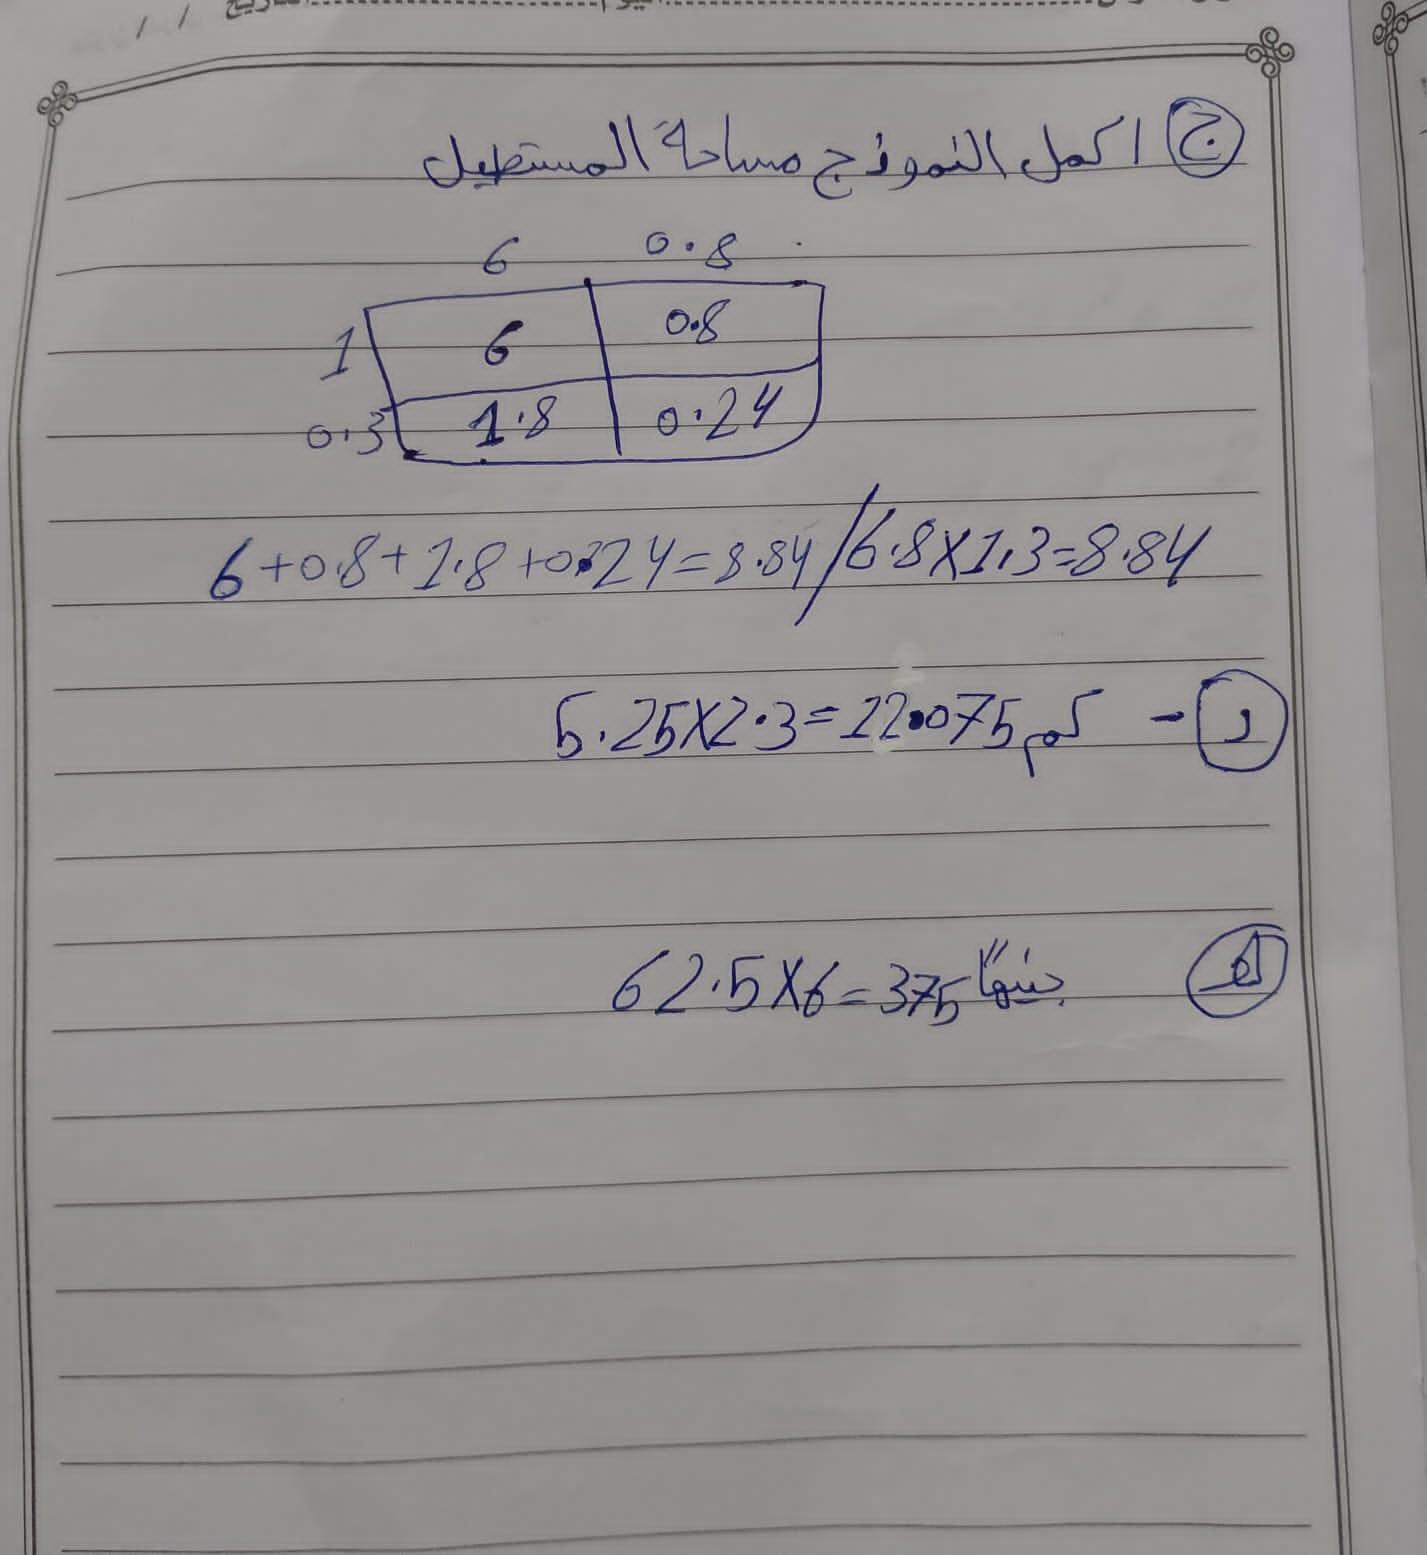 ج اكمل النموذج مساحة المستطيل
6 0.8
1 6 0.8
0.3 1.8 0.24
6+0.8+1.8+0.24=8.84/6.8X1.3=8.84
د - 5.25X2.3=12.075كم
هـ 62.5X6=375جنيهًا